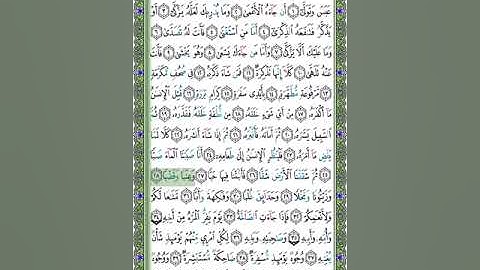 عَبَسَ وَتَوَلَّىٰٓ ١ أَن جَآءَهُ ٱلْأَعْمَىٰ ٢ وَمَا يُدْرِيكَ لَعَلَّهُۥ يَزَّكَّىٰٓ ٣ أَوْ
يَذَّكَّرُ فَتَنفَعَهُ ٱلذِّكْرَىٰٓ ٤ أَمَّا مَنِ ٱسْتَغْنَىٰ ٥ فَأَنتَ لَهُۥ تَصَدَّىٰ ٦
وَمَا عَلَيْكَ أَلَّا يَزَّكَّىٰ ٧ وَأَمَّا مَن جَآءَكَ يَسْعَىٰ ٨ وَهُوَ يَخْشَىٰ ٩ فَأَنتَ
عَنْهُ تَلَهَّىٰ ١٠ كَلَّآ إِنَّهَا تَذْكِرَةٌ ١١ فَمَن شَآءَ ذَكَرَهُۥ ١٢ فِى صُحُفٍ مُّكَرَّمَةٍ
١٣ مَّرْفُوعَةٍ مُّطَهَّرَةٍۭ ١٤ بِأَيْدِى سَفَرَةٍ ١٥ كِرَامٍۭ بَرَرَةٍ ١٦ قُتِلَ ٱلْإِنسَٰنُ
مَآ أَكْفَرَهُۥ ١٧ مِنْ أَىِّ شَىْءٍ خَلَقَهُۥ ١٨ مِن نُّطْفَةٍ خَلَقَهُۥ فَقَدَّرَهُۥ ١٩ ثُمَّ
ٱلسَّبِيلَ يَسَّرَهُۥ ٢٠ ثُمَّ أَمَاتَهُۥ فَأَقْبَرَهُۥ ٢١ ثُمَّ إِذَا شَآءَ أَنشَرَهُۥ ٢٢ كَلَّا لَمَّا
يَقْضِ مَآ أَمَرَهُۥ ٢٣ فَلْيَنظُرِ ٱلْإِنسَٰنُ إِلَىٰ طَعَامِهِۦٓ ٢٤ أَنَّا صَبَبْنَا ٱلْمَآءَ صَبًّا
٢٥ ثُمَّ شَقَقْنَا ٱلْأَرْضَ شَقًّا ٢٦ فَأَنۢبَتْنَا فِيهَا حَبًّا ٢٧ وَعِنَبًا وَقَضْبًا ٢٨
وَزَيْتُونًا وَنَخْلًا ٢٩ وَحَدَآئِقَ غُلْبًا ٣٠ وَفَٰكِهَةً وَأَبًّا ٣١ مَّتَٰعًا لَّكُمْ
وَلِأَنْعَٰمِكُمْ ٣٢ فَإِذَا جَآءَتِ ٱلصَّآخَّةُ ٣٣ يَوْمَ يَفِرُّ ٱلْمَرْءُ مِنْ أَخِيهِ ٣٤
وَأُمِّهِۦ وَأَبِيهِ ٣٥ وَصَٰحِبَتِهِۦ وَبَنِيهِ ٣٦ لِكُلِّ ٱمْرِئٍ مِّنْهُمْ يَوْمَئِذٍ شَأْنٌ
يُغْنِيهِ ٣٧ وُجُوهٌ يَوْمَئِذٍ مُّسْفِرَةٌ ٣٨ ضَاحِكَةٌ مُّسْتَبْشِرَةٌ ٣٩ وَوُجُوهٌ